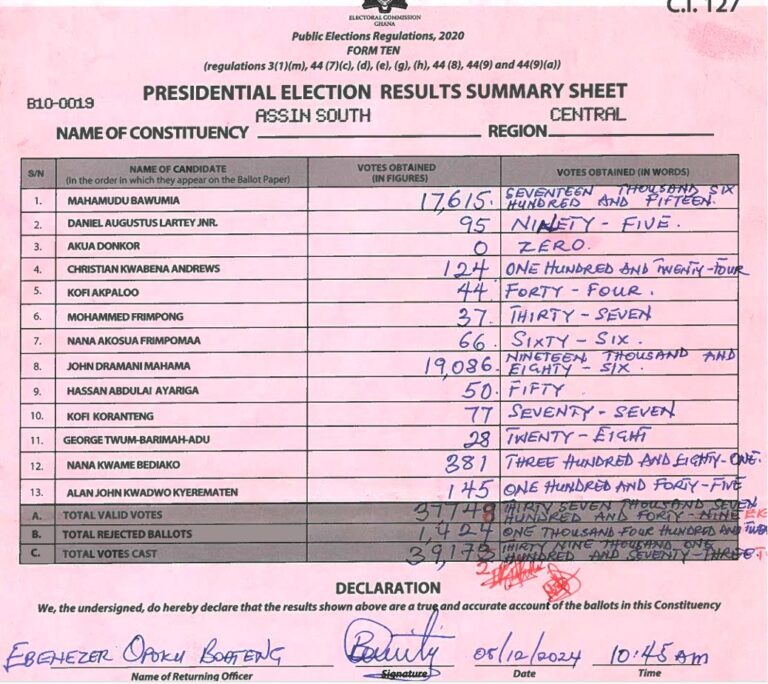 C.I. 127
ELECTORAL COMMISSION
GHANA
Public Elections Regulations, 2020
FORM TEN
(regulations 3(1)(m), 44 (7)(c), (d), (e), (g), (h), 44 (8), 44(9) and 44(9)(a))
PRESIDENTIAL ELECTION RESULTS SUMMARY SHEET
B10-0019
ASSIN SOUTH CENTRAL
NAME OF CONSTITUENCY REGION
S/N NAME OF CANDIDATE (In the order in which they appear on the Ballot Paper) VOTES OBTAINED (IN FIGURES) VOTES OBTAINED (IN WORDS)
1. MAHAMUDU BAWUMIA 17,615. SEVENTEEN THOUSAND SIX HUNDRED AND FIFTEEN.
2. DANIEL AUGUSTUS LARTEY JNR. 95 NINETY - FIVE.
3. AKUA DONKOR 0 ZERO.
4. CHRISTIAN KWABENA ANDREWS 124 ONE HUNDRED AND TWENTY-FOUR
5. KOFI AKPALOO 44. FORTY - FOUR.
6. MOHAMMED FRIMPONG 37. THIRTY - SEVEN
7. NANA AKOSUA FRIMPOMAA 66. SIXTY - SIX.
8. JOHN DRAMANI MAHAMA 19,086. NINETEEN THOUSAND AND EIGHTY - SIX.
9. HASSAN ABDULAI AYARIGA 50. FIFTY
10. KOFI KORANTENG 77 SEVENTY - SEVEN
11. GEORGE TWUM-BARIMAH-ADU 28 TWENTY - EIGHT
12. NANA KWAME BEDIAKO 381 THREE HUNDRED AND EIGHTY-ONE.
13. ALAN JOHN KWADWO KYEREMATEN 145 ONE HUNDRED AND FORTY-FIVE
A. TOTAL VALID VOTES THIRTY SEVEN THOUSAND SEVEN HUNDRED AND FORTY - NINE
B. TOTAL REJECTED BALLOTS 1,424 ONE THOUSAND FOUR HUNDRED AND
C. TOTAL VOTES CAST THIRTY NINE THOUSAND ONE HUNDRED AND SEVENTY-THREE
2
DECLARATION
We, the undersigned, do hereby declare that the results shown above are a true and accurate account of the ballots in this Constituency
EBENEZER OPOKU BOATENG 08/12/2024 10:45 am
Name of Returning Officer Signature Date Time